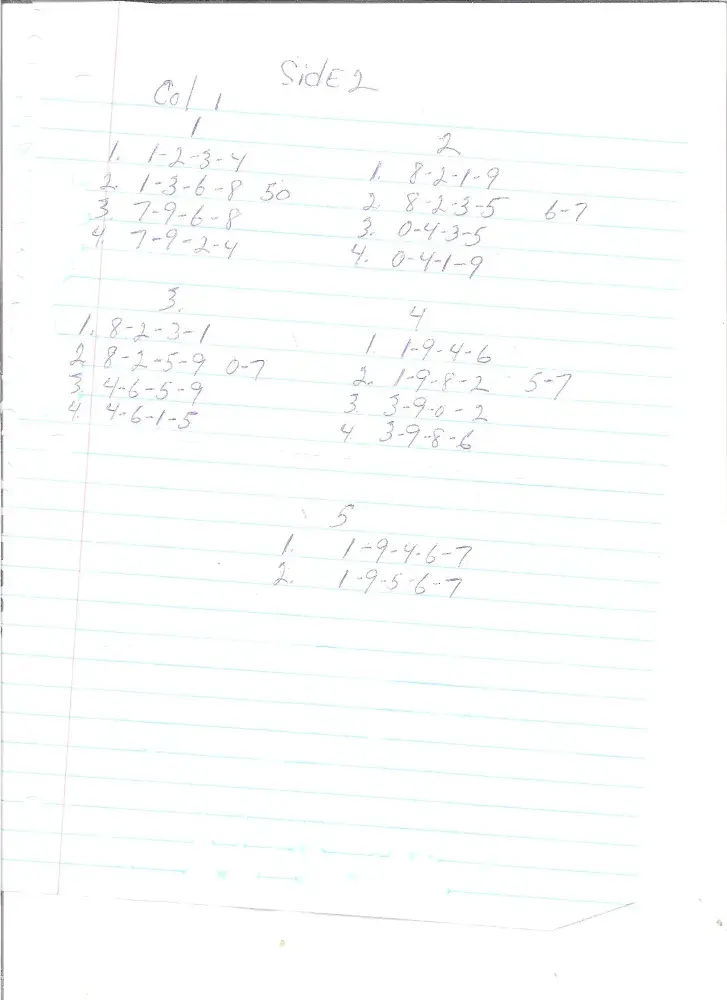 Side 2
Col 1
1
1. 1-2-3-4
2. 1-3-6-8 50
3. 7-9-6-8
4. 7-9-2-4
2
1. 8-2-1-9
2. 8-2-3-5 6-7
3. 0-4-3-5
4. 0-4-1-9
3.
1. 8-2-3-1
2. 8-2-5-9 0-7
3. 4-6-5-9
4. 4-6-1-5
4
1. 1-9-4-6
2. 1-9-8-2 5-7
3. 3-9-0-2
4. 3-9-8-6
5
1. 1-9-4-6-7
2. 1-9-5-6-7